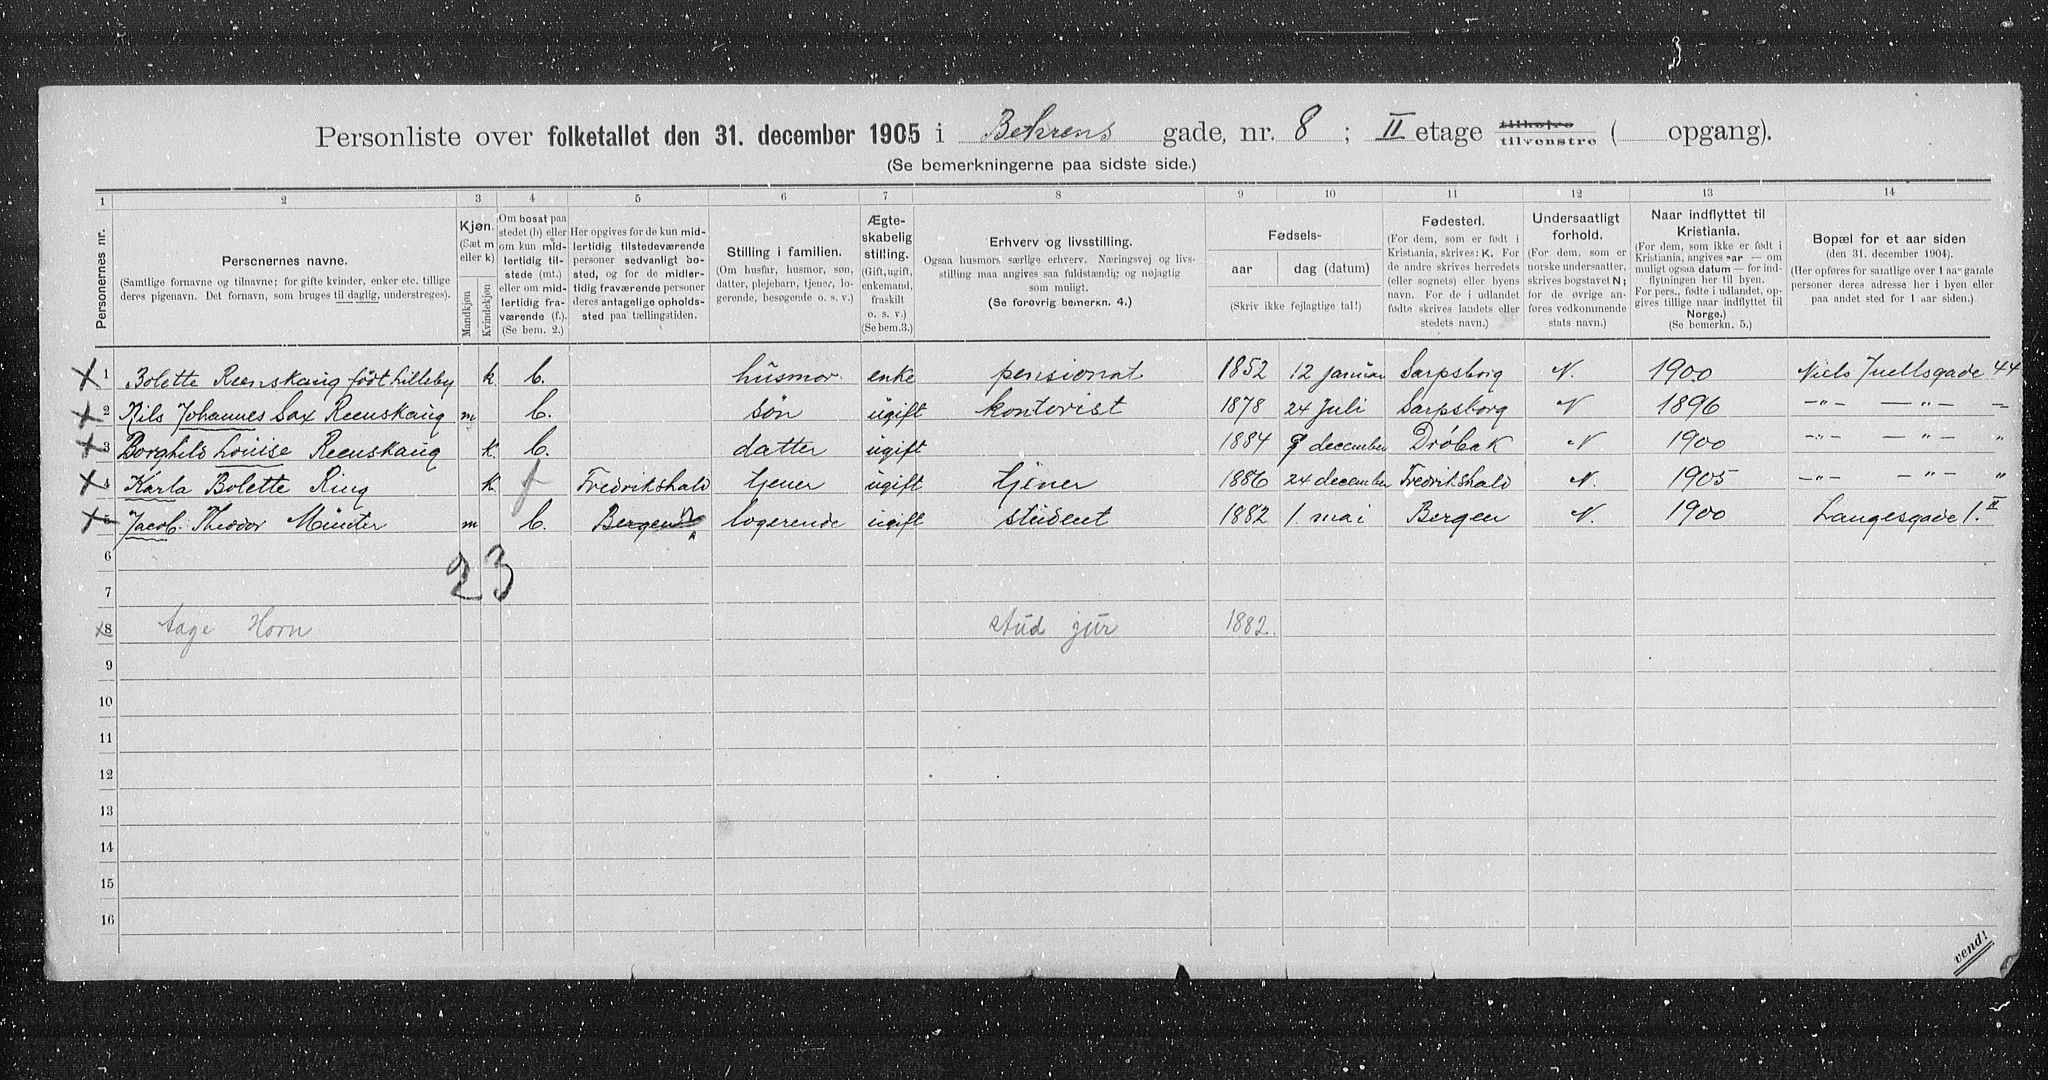 Personliste over folketallet den 31. december 1905 i Behrens gade, nr. 8 ; II etage tilhøjre tilvenstre ( opgang).
(Se bemerkningerne paa sidste side.)
1 2 3 4 5 6 7 8 9 10 11 12 13 14
Personernes nr.
Personernes navne.
(Samtlige fornavne og tilnavne; for gifte kvinder, enker etc. tillige
deres pigenavn. Det fornavn, som bruges til daglig, understreges).
Kjøn.
(Sæt m
eller k)
Mandkjøn
Kvindekjøn
Om bosat paa
stedet (b) eller
om kun mid-
lertidig til-
stede (mt.)
eller om mid-
lertidig fra-
værende (f.).
(Se bem. 2.)
Her opgives for de kun mid-
lertidig tilstedeværende
personer sedvanligt bo-
sted, og for de midler-
tidig fraværende personer
deres antagelige opholds-
sted paa tællingstiden.
Stilling i familien.
(Om husfar, husmor, søn,
datter, plejebarn, tjener, lo-
gerende, besøgende o. s. v.)
Ægte-
skabelig
stilling.
(Gift, ugift,
enkemand,
fraskilt
o. s. v.)
(Se bem.3.)
Erhverv og livsstilling.
Ogsaa husmors særlige erhverv. Næringsvej og livs-
stilling maa angives saa fuldstændig og nøjagtig
som muligt.
(Se forøvrig bemerkn. 4.)
Fødsels-
aar dag (datum)
(Skriv ikke fejlagtige tal!)
Fødested.
(For dem, som er født i
Kristiania, skrives: K. For
de andre skrives herredets
(eller sognets) eller byens
navn. For de i udlandet
fødte skrives landets eller
stedets navn.)
Undersaatligt
forhold.
(For dem, som er
norske undersaatter,
skrives bogstavet N;
for de øvrige an-
føres vedkommende
stats navn.)
Naar indflyttet til
Kristiania.
(For dem, som ikke er født i
Kristiania, angives aar — om
muligt ogsaa datum — for ind-
flytningen her til byen.
For pers., fødte i udlandet, op-
gives tillige naar indflyttet til
Norge.)
(Se bemerkn. 5.)
Bopæl for et aar siden
(den 31. december 1904).
(Her opføres for samtlige over 1 aar gamle
personer deres adresse her i byen eller
paa andet sted for 1 aar siden.)
1 Bolette Reenskaug født Lilleby k b. husmor enke pensionat 1852 12 januar Sarpsborg N. 1900 Niels Juellsgade 44
2 Nils Johannes Sax Reenskaug m b. søn ugift kontorist 1878 24 Juli Sarpsborg N 1896 -"- -"- -
3 Borghild Louise Reenskaug k. b. datter ugift 1884 9 december Drøbak N 1900 -"- -"- "
4 Karla Bolette Ring k f Fredrikshald tjener ugift tjener 1886 24 december Fredrikshald N. 1905 -"- -"- "
5 Jacob Theodor Münter m b. Bergen logerende ugift student 1882 1. mai Bergen N. 1900 Langesgade 1. II
6
2 3
7
8 Aage Horn stud jur 1882.
9
10
11
12
13
14
15
16
vend!